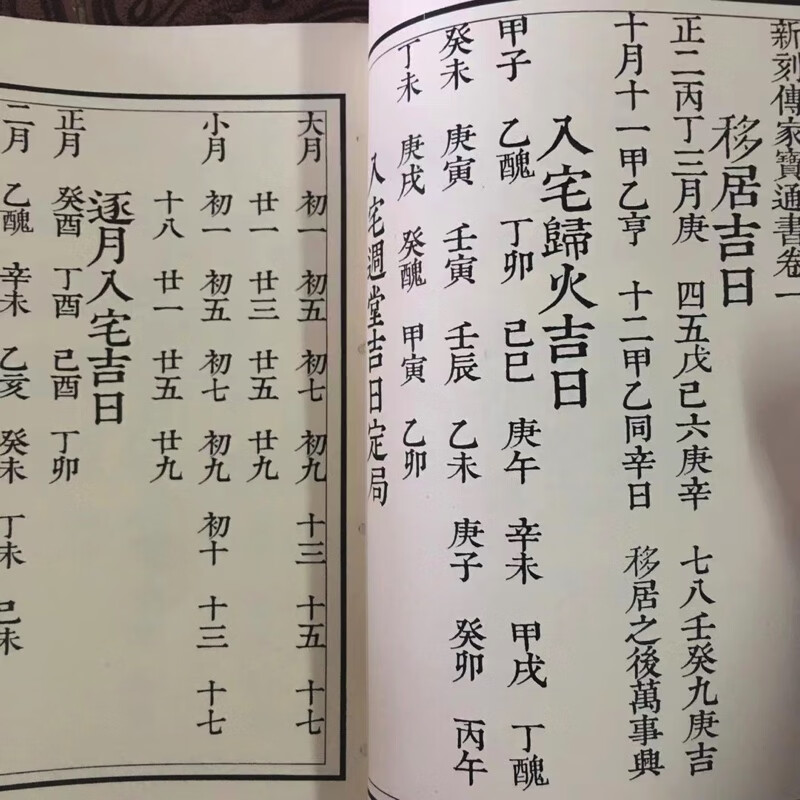 新刻傳家寶通書卷一
移居吉日
正二丙丁三月庚 四五戊己六庚辛 七八壬癸九庚吉
十月十一甲乙亨 十二甲乙同辛日 移居之後萬事興
入宅歸火吉日
甲子 乙醜 丁卯 己巳 庚午 辛未 甲戌 丁醜
癸未 庚寅 壬寅 壬辰 乙未 庚子 癸卯 丙午
丁未 庚戌 癸醜 甲寅 乙卯
入宅週堂吉日定局
大月 初一 初五 初七 初九 十三 十五 十七
廿一 廿三 廿五 廿九
小月 初一 初五 初七 初九 初十 十三 十七
十八 廿一 廿五 廿九
逐月入宅吉日
正月 癸酉 丁酉 己酉 丁卯
二月 乙醜 辛未 乙亥 癸未 丁未 己未